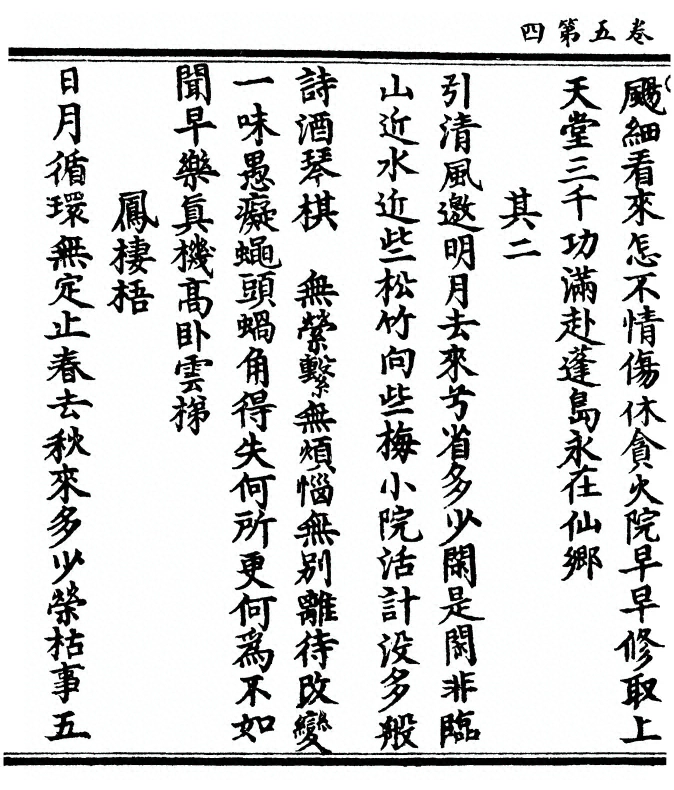 卷五第四
颺細看來怎不情傷休貪火院早早修取上
天堂三千功滿赴蓬島永在仙鄉
其二
引清風邀明月去來兮省多少閑是閑非臨
山近水近些松竹向些梅小院活計没多般
詩酒琴棋　無縈繫無煩惱無别離待改變
一味愚癡蠅頭蝸角得失何所更何爲不如
聞早樂真機高卧雲梯
鳳棲梧
日月循環無定止春去秋來多少榮枯事五